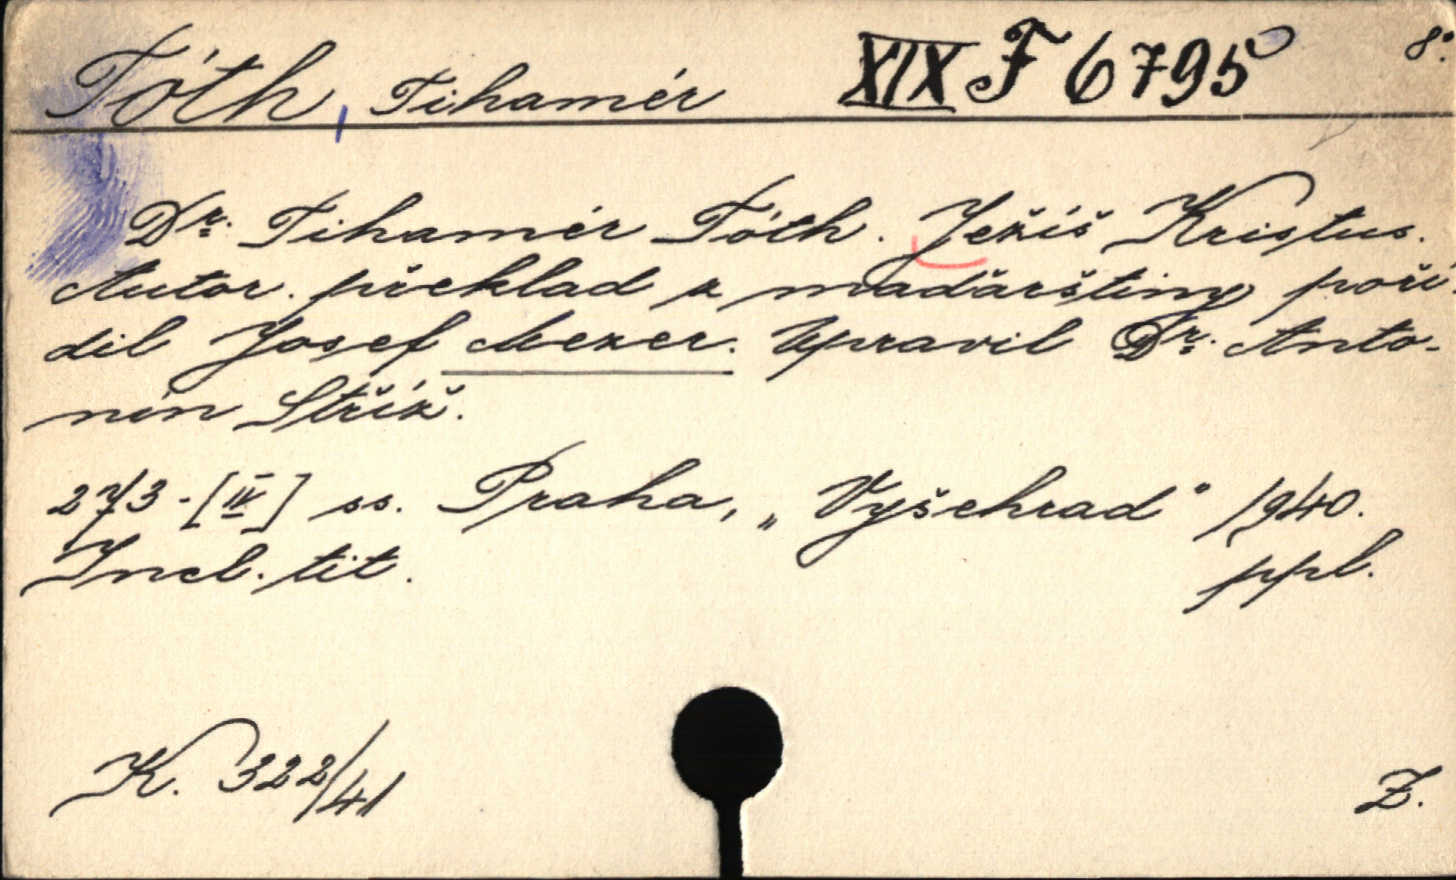 Tóth, Tihamér XIX F 6795 8°.
Dr. Tihamér Tóth. Ježíš Kristus.
Autor. překlad z maďarštiny poří-
dil Josef Mezer. Upravil Dr. Anto-
nín Stříž.
273-[IV] ss. Praha, „Vyšehrad" 1940.
Incl. tit. ppl.
K. 322/41 Z.